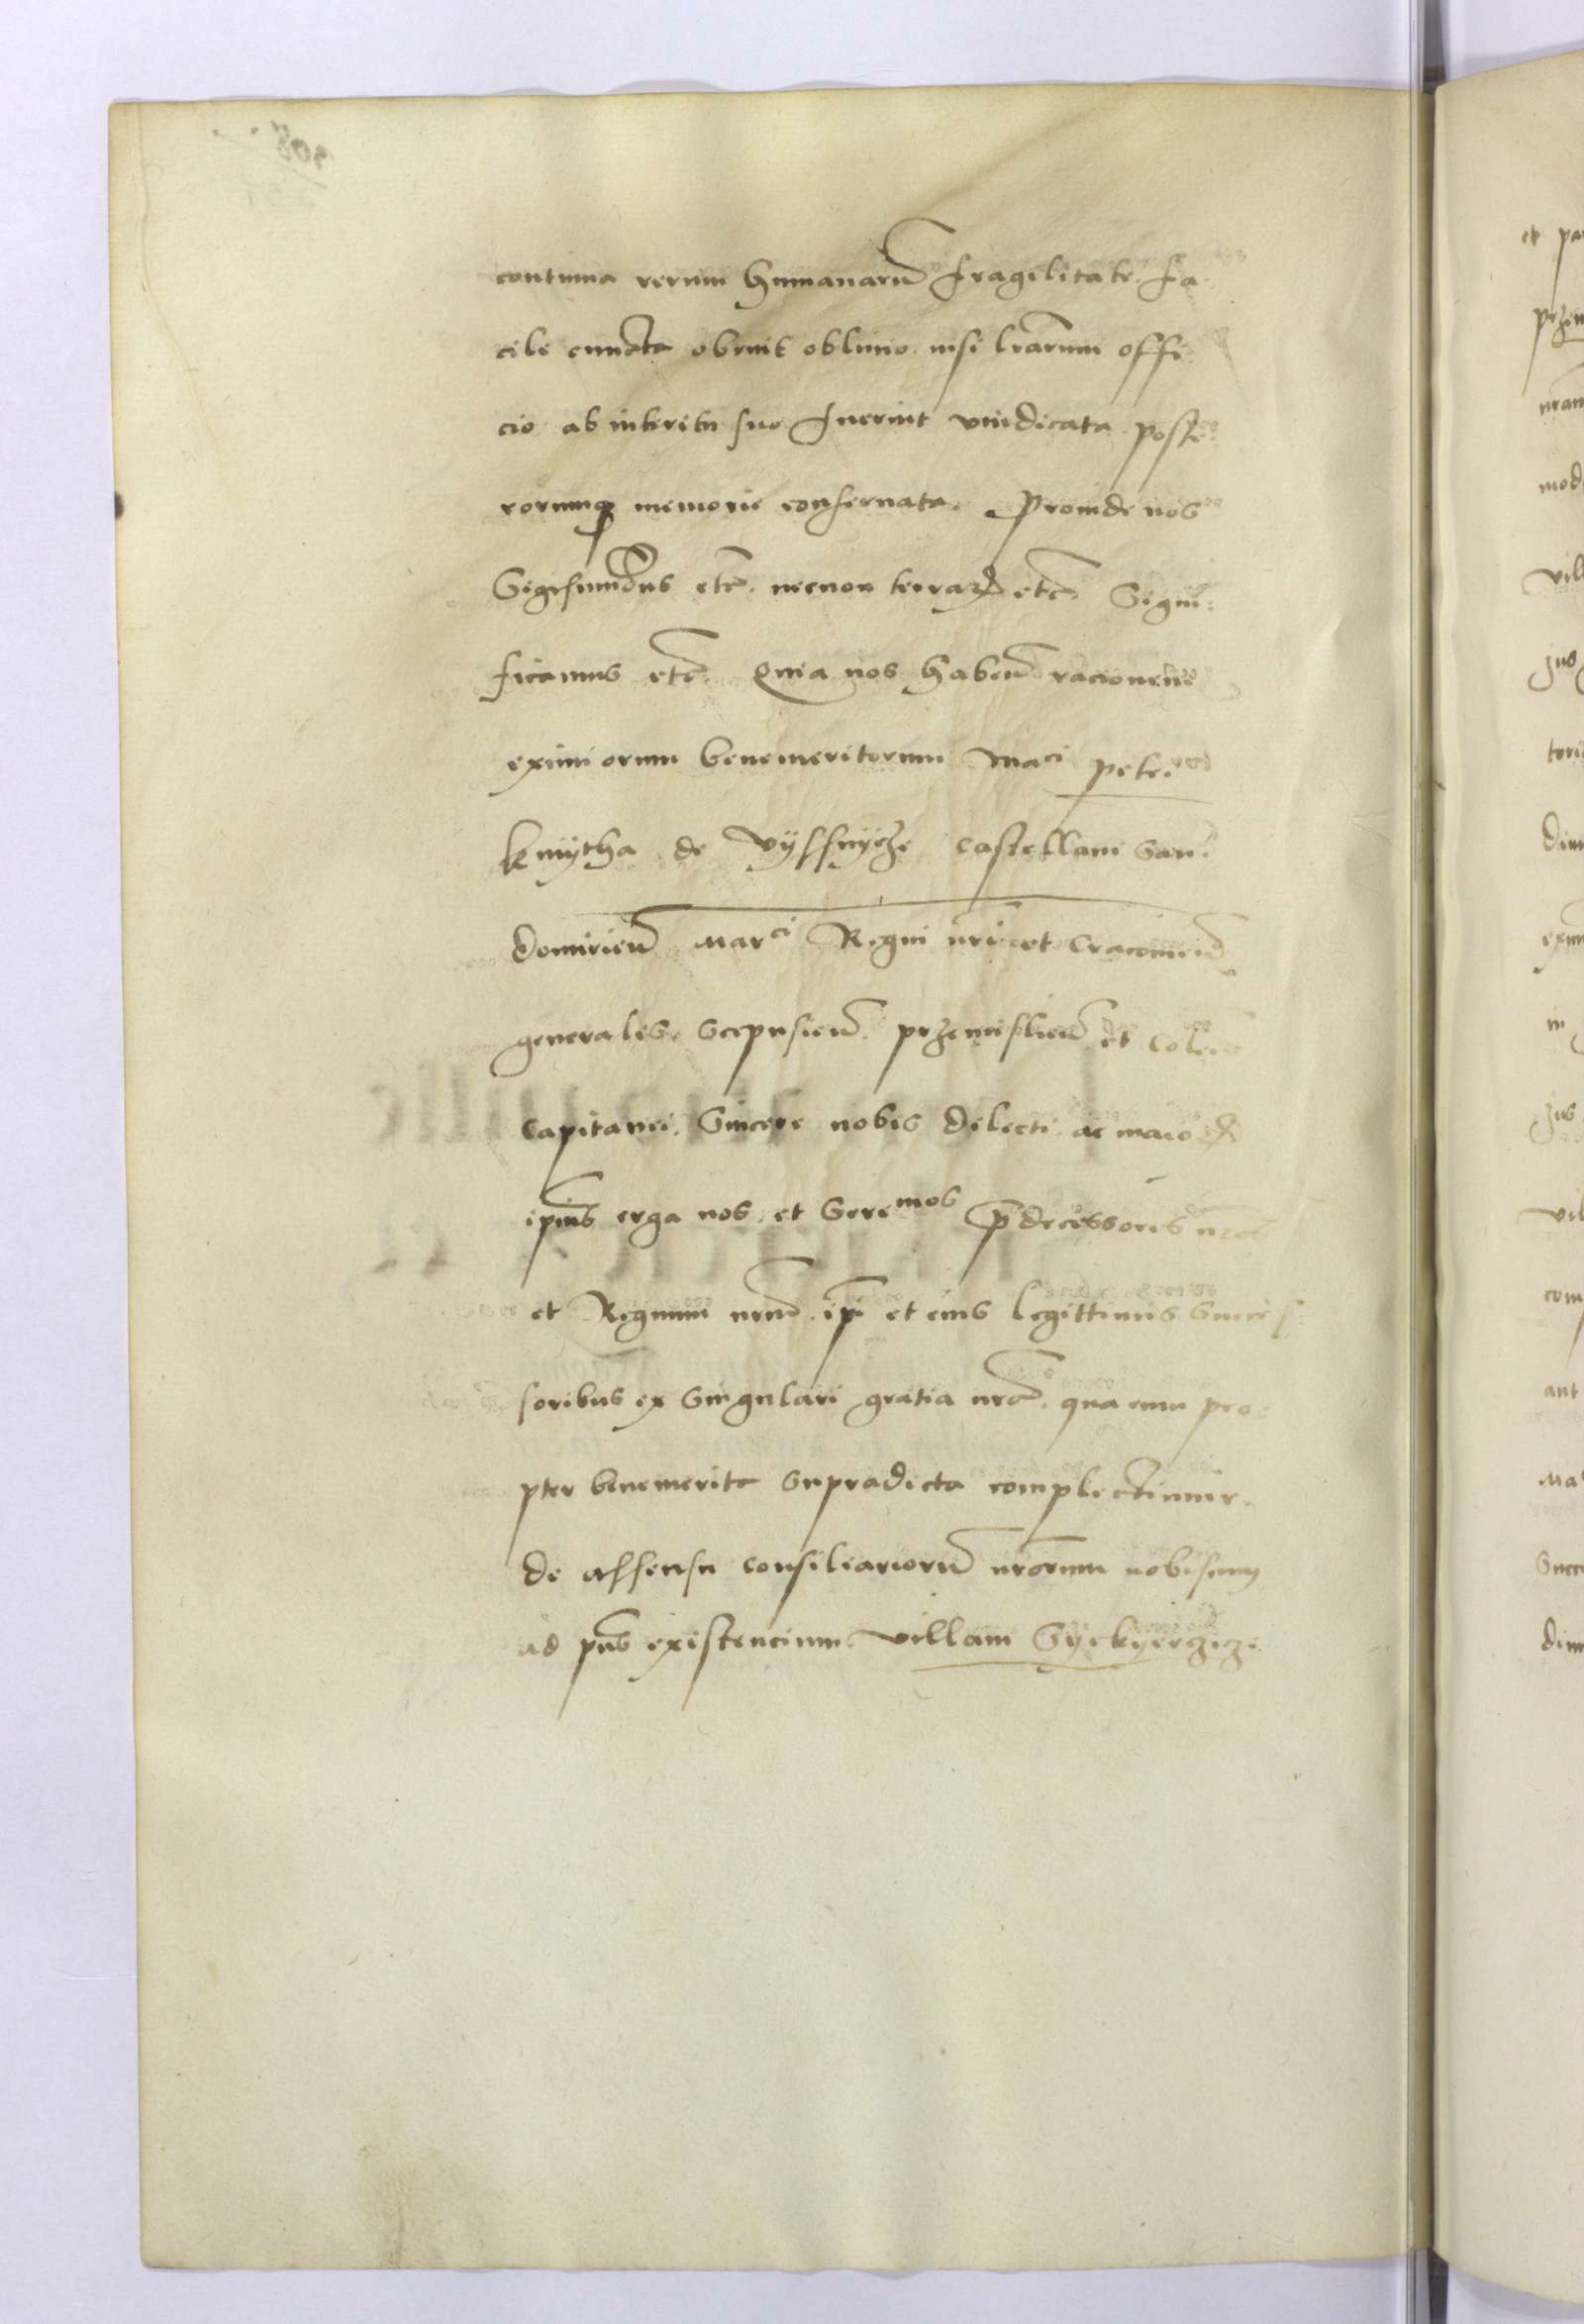 continua rerum humanarũ fragilitate fa
cile cuncta obruit oblivio nisi lr̃arum offi
cio ab interitu suo fuerint vindicata poste
rorumq̃ memorie conservata. Proinde nos
Sigismundus etc̃. necnon terrarꝝ etc̃. Signi
ficamus etc̃. Quia nos habeñ racionem
eximiorum benemeritorum Maci Petri
Kmytha de Vyssnycze Castellani San
domirieñ Marci Regni nr̃i et Cracovień
generalis. Scepusieñ. przemislieñ et Coleñ
Capitanei. Sincere nobis dilecti ac maioꝝ
ipius erga nos et Seremos p̃decessores nr̃os
et Regnum nrm̃ ip̃i et eius legittimis Succes
soribus ex Singulari gratia nrã. qua eum pro
pter benemerita supradicta complectimur.
de assensu consiliariorũ nrõrum nobiscum
ad pñs existencium villam Syekyerzicze
et pa
przem
nram
mod
vill
Jus
terri
dim
exim
in
Jus
vil
com
ant
Ma
Succ
dim